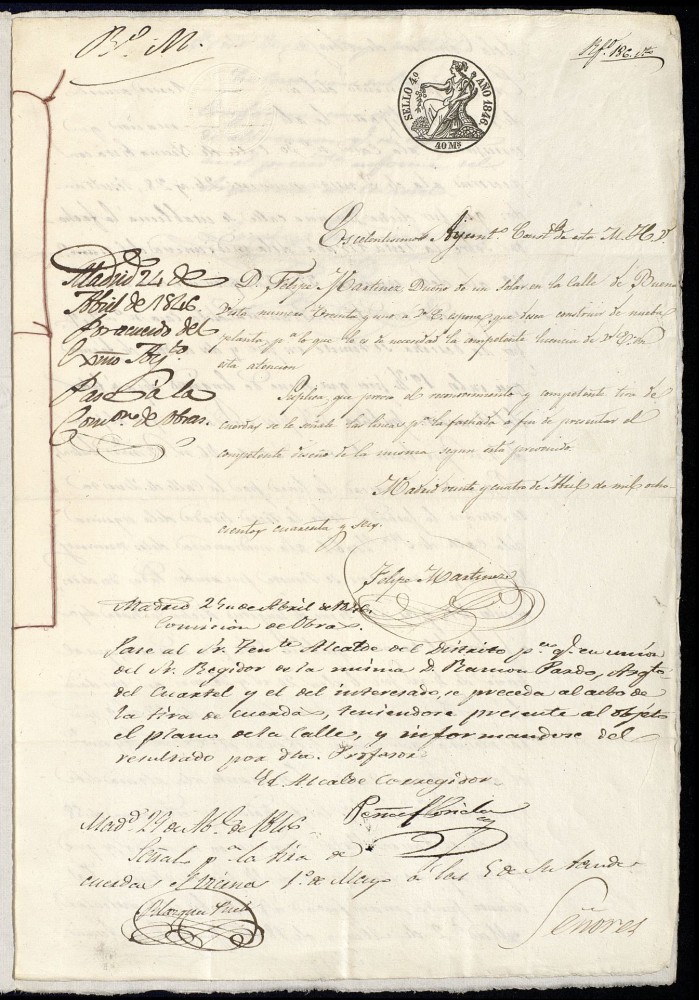 Bº. M.
SELLO 4º AÑO 1846.
40 Ms
Excelentisimo Ayuntº. Constl. de esta M. H. V.
Madrid 24 de
Abril de 1846
Por acuerdo del
Exmo Aytº.
Pase á la
Comon. de Obras.
D. Felipe Martinez Dueño de un Solar en la Calle de Buena
Vista numero treinta y uno a V. E. espone: que desea construir de nueba
planta, pª lo que le es de necesidad la competente licencia de V. E. en
esta atencion
Suplica, que previo el reconocimiento y competente tira de
cuerdas se le señale la linea pª la fachada a fin de presentar el
competente diseño de la misma segun está prevenido.
Madrid veinte y cuatro de Abril de mil ocho-
cientos cuarenta y seis.
Felipe Martinez
Madrid 25 de Abril de 1846.
Comision de Obras.
Pase al Sr. Tente. Alcalde del Distrito pª q.e en union
del Sr. Regidor de la misma D. Ramon Pardo, Arqto.
del Cuartel y el del interesado, se proceda al acto de
la tira de cuerdas, teniendose presente al objeto
el plano de la Calle, y informandose del
resultado por dho. Profesor
El Alcalde Corregidor
Peñaflorida
Madd. 29 de Ab. de 1846
Señal pª la tira de
cuerdas el viernes 1º. de Mayo á las 5 de su tarde
Señores